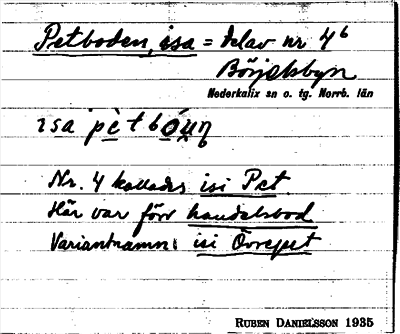 Petboden, isa = delav nr 4⁶
Börjelsbyn
Nederkalix sn o. tg. Norrb. län
isa pètbóuņ
Nr. 4 kallades isi Pet.
Här var förr handelsbod
Variantnamn: isi Örrepet
RUBEN DANIELSSON 1935